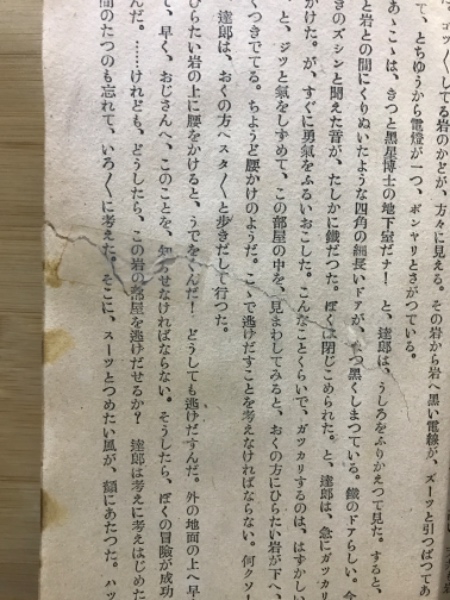 ゴツ〳〵してる岩のかどが、方々に見える。その岩から岩へ黒い電線が、ズーツと引つぱつてあ
て、とちゆうから電燈が一つ、ボンヤリとさがつている。
あゝこゝは、きつと黑星博士の地下室だナ！　と、達郎は、うしろをふりかえつて見た。すると、
と岩との間にくりぬいたような四角の細長いドアが、まつ黑くしまつている。鐵のドアらしい。今
きのズシンと聞えた音が、たしかに鐵だつた。ぼくは閉じこめられた。と、達郎は、急にガツカリ
かけた。が、すぐに勇氣をふるいおこした。こんなことくらいで、ガツカリするのは、はずかしい
と、ジツと氣をしずめて、この部屋の中を、見まわしてみると、おくの方にひらたい岩が下へ、
くつきでてる。ちようど腰かけのようだ。こゝで逃げだすことを考えなければならない。何クソー
達郎は、おくの方へスタ〳〵と步きだして行つた。
ひらたい岩の上に腰をかけると、うでをくんだ！　どうしても逃げだすんだ。外の地面の上へ早
て、早く、おじさんへ、このことを、知らせなければならない。そうしたら、ぼくの冒險が成功
んだ。……けれども、どうしたら、この岩の部屋を逃げだせるか？　達郎は考えに考えはじめた
間のたつのも忘れて、いろ〳〵に考えた。そこに、スーツとつめたい風が、額にあたつた。ハツ